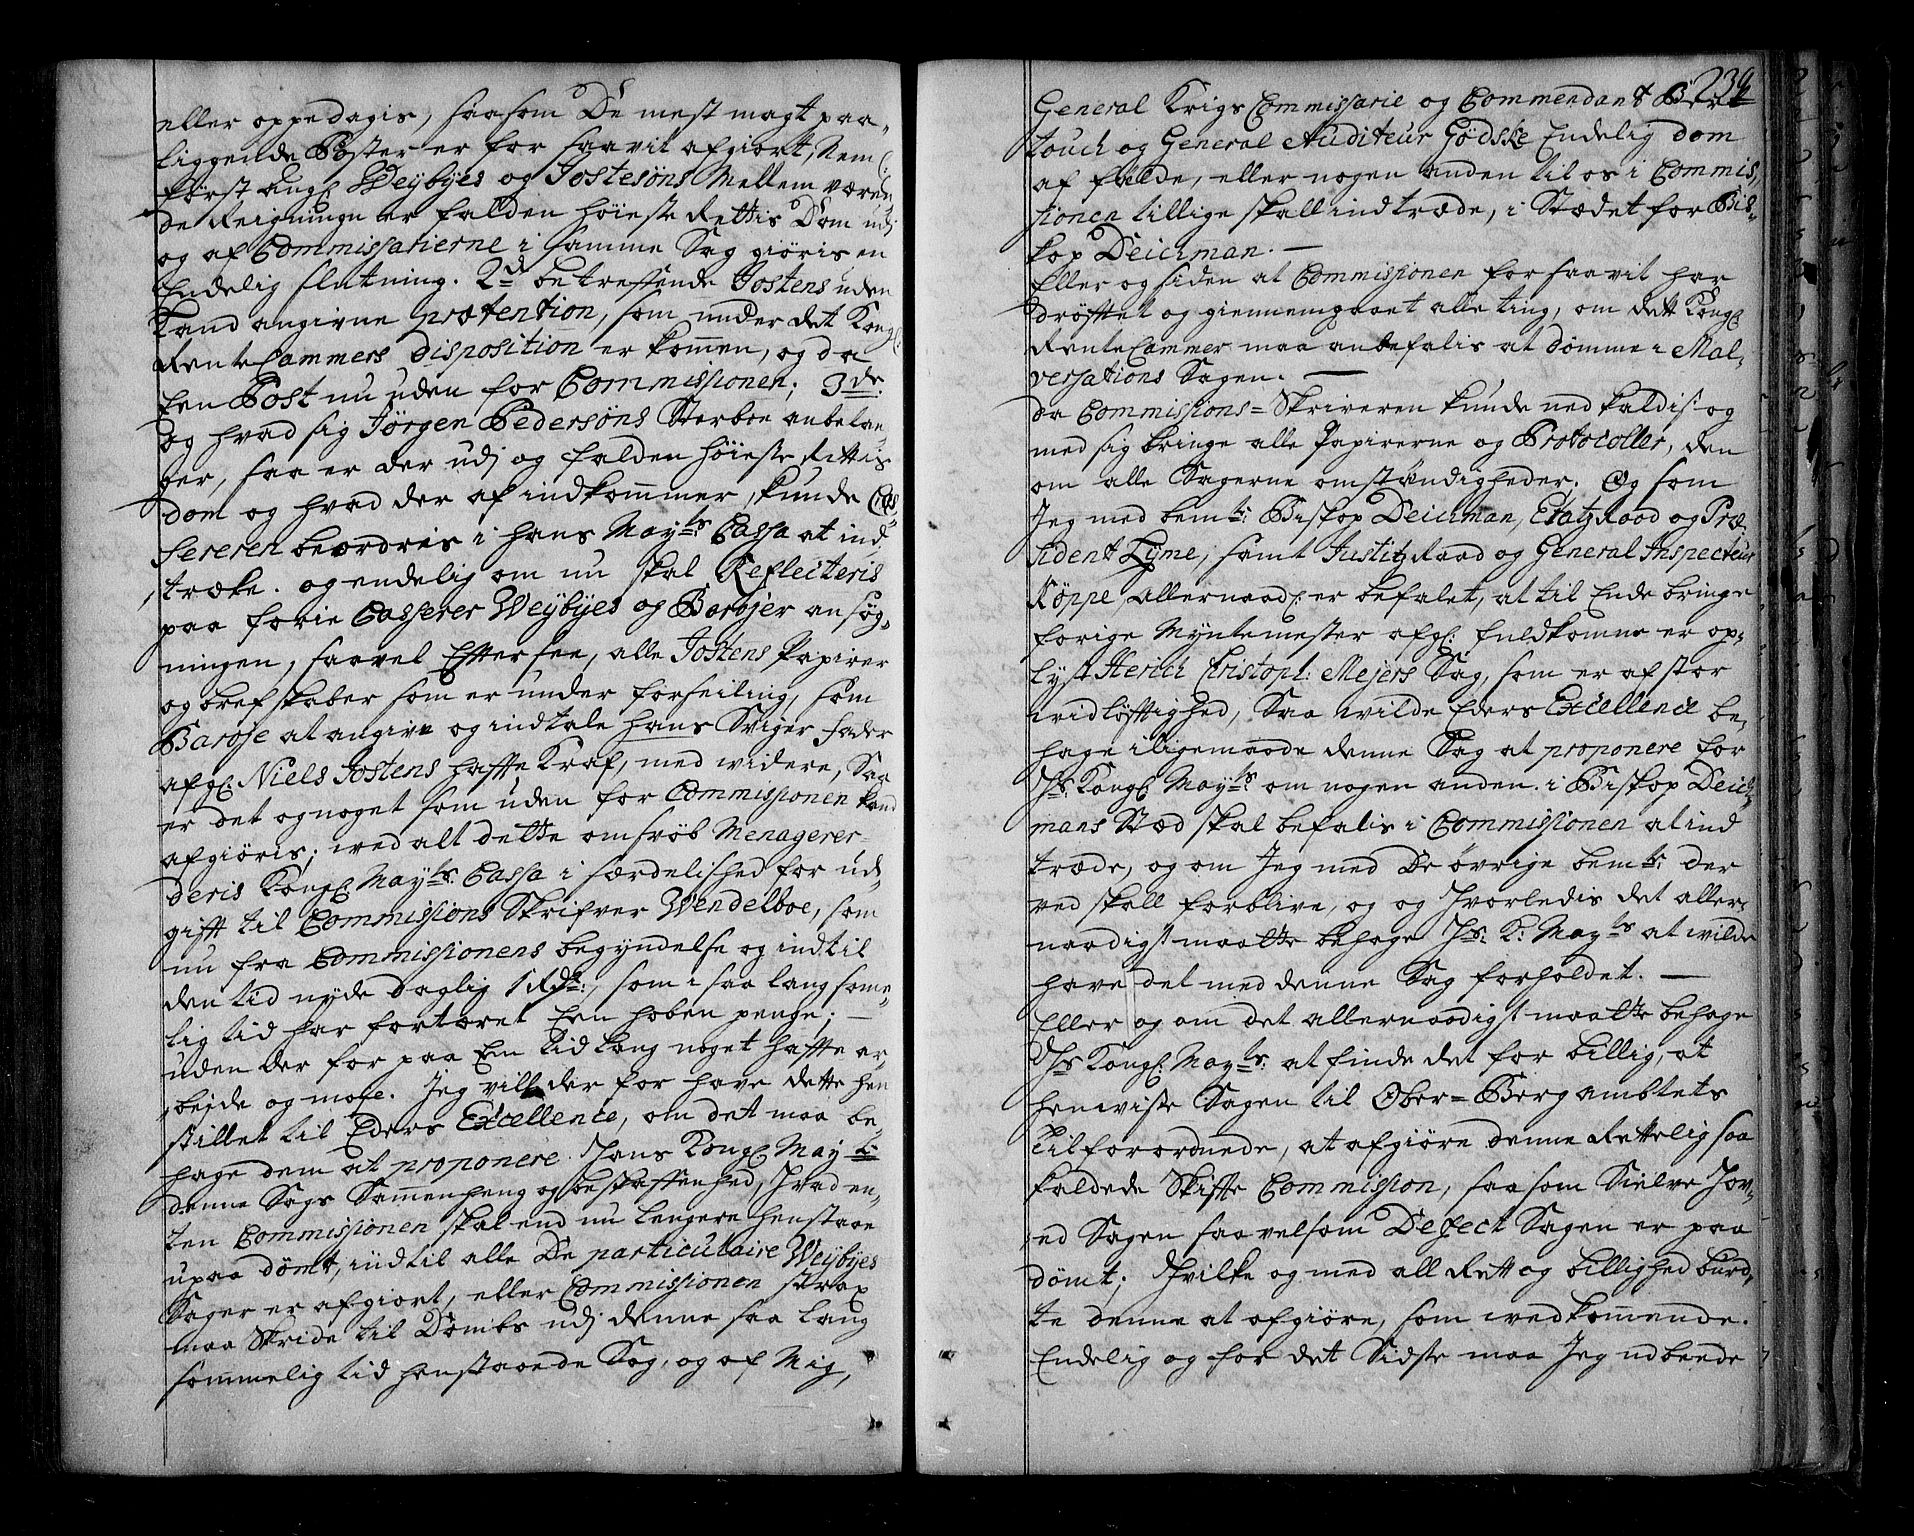 eller oppedagis, saasom De mest magt paa-
liggende Poster er for saavit afgiort, Neml:
først angl: Weybyes og Jostesøns Mellem væren
de Reigninge er falden höieste Rettis Dom udj
og af Commissarierne i samme Sag giøris en
Endelig slutning. 2d betreffende Jostens uden
Land angivne prætention, som under det Kongl:
Rente Cammers disposition er kommen, og da
Een Post nu uden for Commissionen; 3de
og hvad sig Jørgen Pedersøns Sterboe anbelan-
ger, saa er der udj og falden höieste Rettis
dom og hvad der af indkommer, kunde Cas-
sereren beordris i hans Mayts: Cassa at ind
træke. og endelig om nu skal Reflecteris
paa forie Casserer Weybyes og Barojer ansøg-
ningen, saavel Eftersee, alle Jostens Papirer
og brefskaber som er under forseiling, som
Baroje at angive og indtale hans Sviger fader
afgl: Niels Jostens hafte Kraf, med widere, Saa
er det og noget som uden for Commissionen kand
afgiøris; wed alt dette omsvöb Menagerer
deris Kongl: Mayts: Cassa i særdelished for ud-
gift til Commissions Skrifver Wendelboe, som
nu fra Commissionens begyndelse og indtil
den tid nyde daglig 1 Rdr:, som i saa lang some-
lig tid har fortæret Een hoben penge; —
uden der for paa Een tid lang noget hafte ar-
bejde og moje. Jeg vill der for have dette hen
stillet til Eders Excellence, om det maa be-
hage dem at proponere Hans Kongl: Mayt:
denne Sags Sammenheng og beskaffenhed, Hvad en-
ten Commissionen skal end nu lengere henstaae
upaa dömt, indtil alle De particulaire Weybyes
Sager er afgiort, eller Commissionen strax
maa Skride til Dombs udj denne saa lang
sommelig tid henstaaende Sag, og af Mig,
239
General Krigs Commissarie og Commendant Ber-
touch og General Auditeur Gödske Endelig dom
af fælde, eller nogen anden til os i Commis-
sionen tillige skall indtræde, i Stædet for Bis-
kop Deichman. —
Eller og siden at Commissionen for saavit har
dröftet og giennemgaaet alle ting, om dett Kongl:
Rente Cammer maa anbefalis at dömme i Mal-
versations Sagen. —
da Commissions-Skriveren kunde ned kaldis og
med sig bringe alle Papirerne og Protocoller, den
om alle Sagerne omstændigheder. Og som
Jeg med bemte: Biskop Deichman, Etatz Raad og Præ-
sident Tyme, samt Justitz Raad og General Inspecteur
Köppe, Allernaadt: er befalet, at til Ende bringe
forige Myntemester afgl: fuldkomne er op-
lyst Herich Cristoph: Mejers Sag, som er af stor
widlöftighed, Saa wilde Eders Excellence be-
hage iligemaade denne Sag at proponere for
Hs: Kongl: Mayts: om nogen anden i Biskop Deich-
mans Stæd skal befalis i Commissionen at ind
træde, og om Jeg med De övrige bemte: der
ved skall forblive, og og Hvorledis det aller-
naadigst maatte behage Hs: K: Mayts at wilde
have det med denne Sag forholdet. —
Eller og om det allernaadigst maatte behage
Hs Kongl: Mayts: at finde det for billig, at
henviste Sagen til Ober-Bergambtets
tilforordnede, at afgiøre denne Rettelig saa
kaldede Skifte Commission, saasom Sielve Hov-
ed Sagen saavelsom Defect Sagen er paa
dömt; Hvilke og med all Rett og billighed burd-
te denne at afgiöre, som wedkommende.
Endelig og for det Sidste maa Jeg udbeede